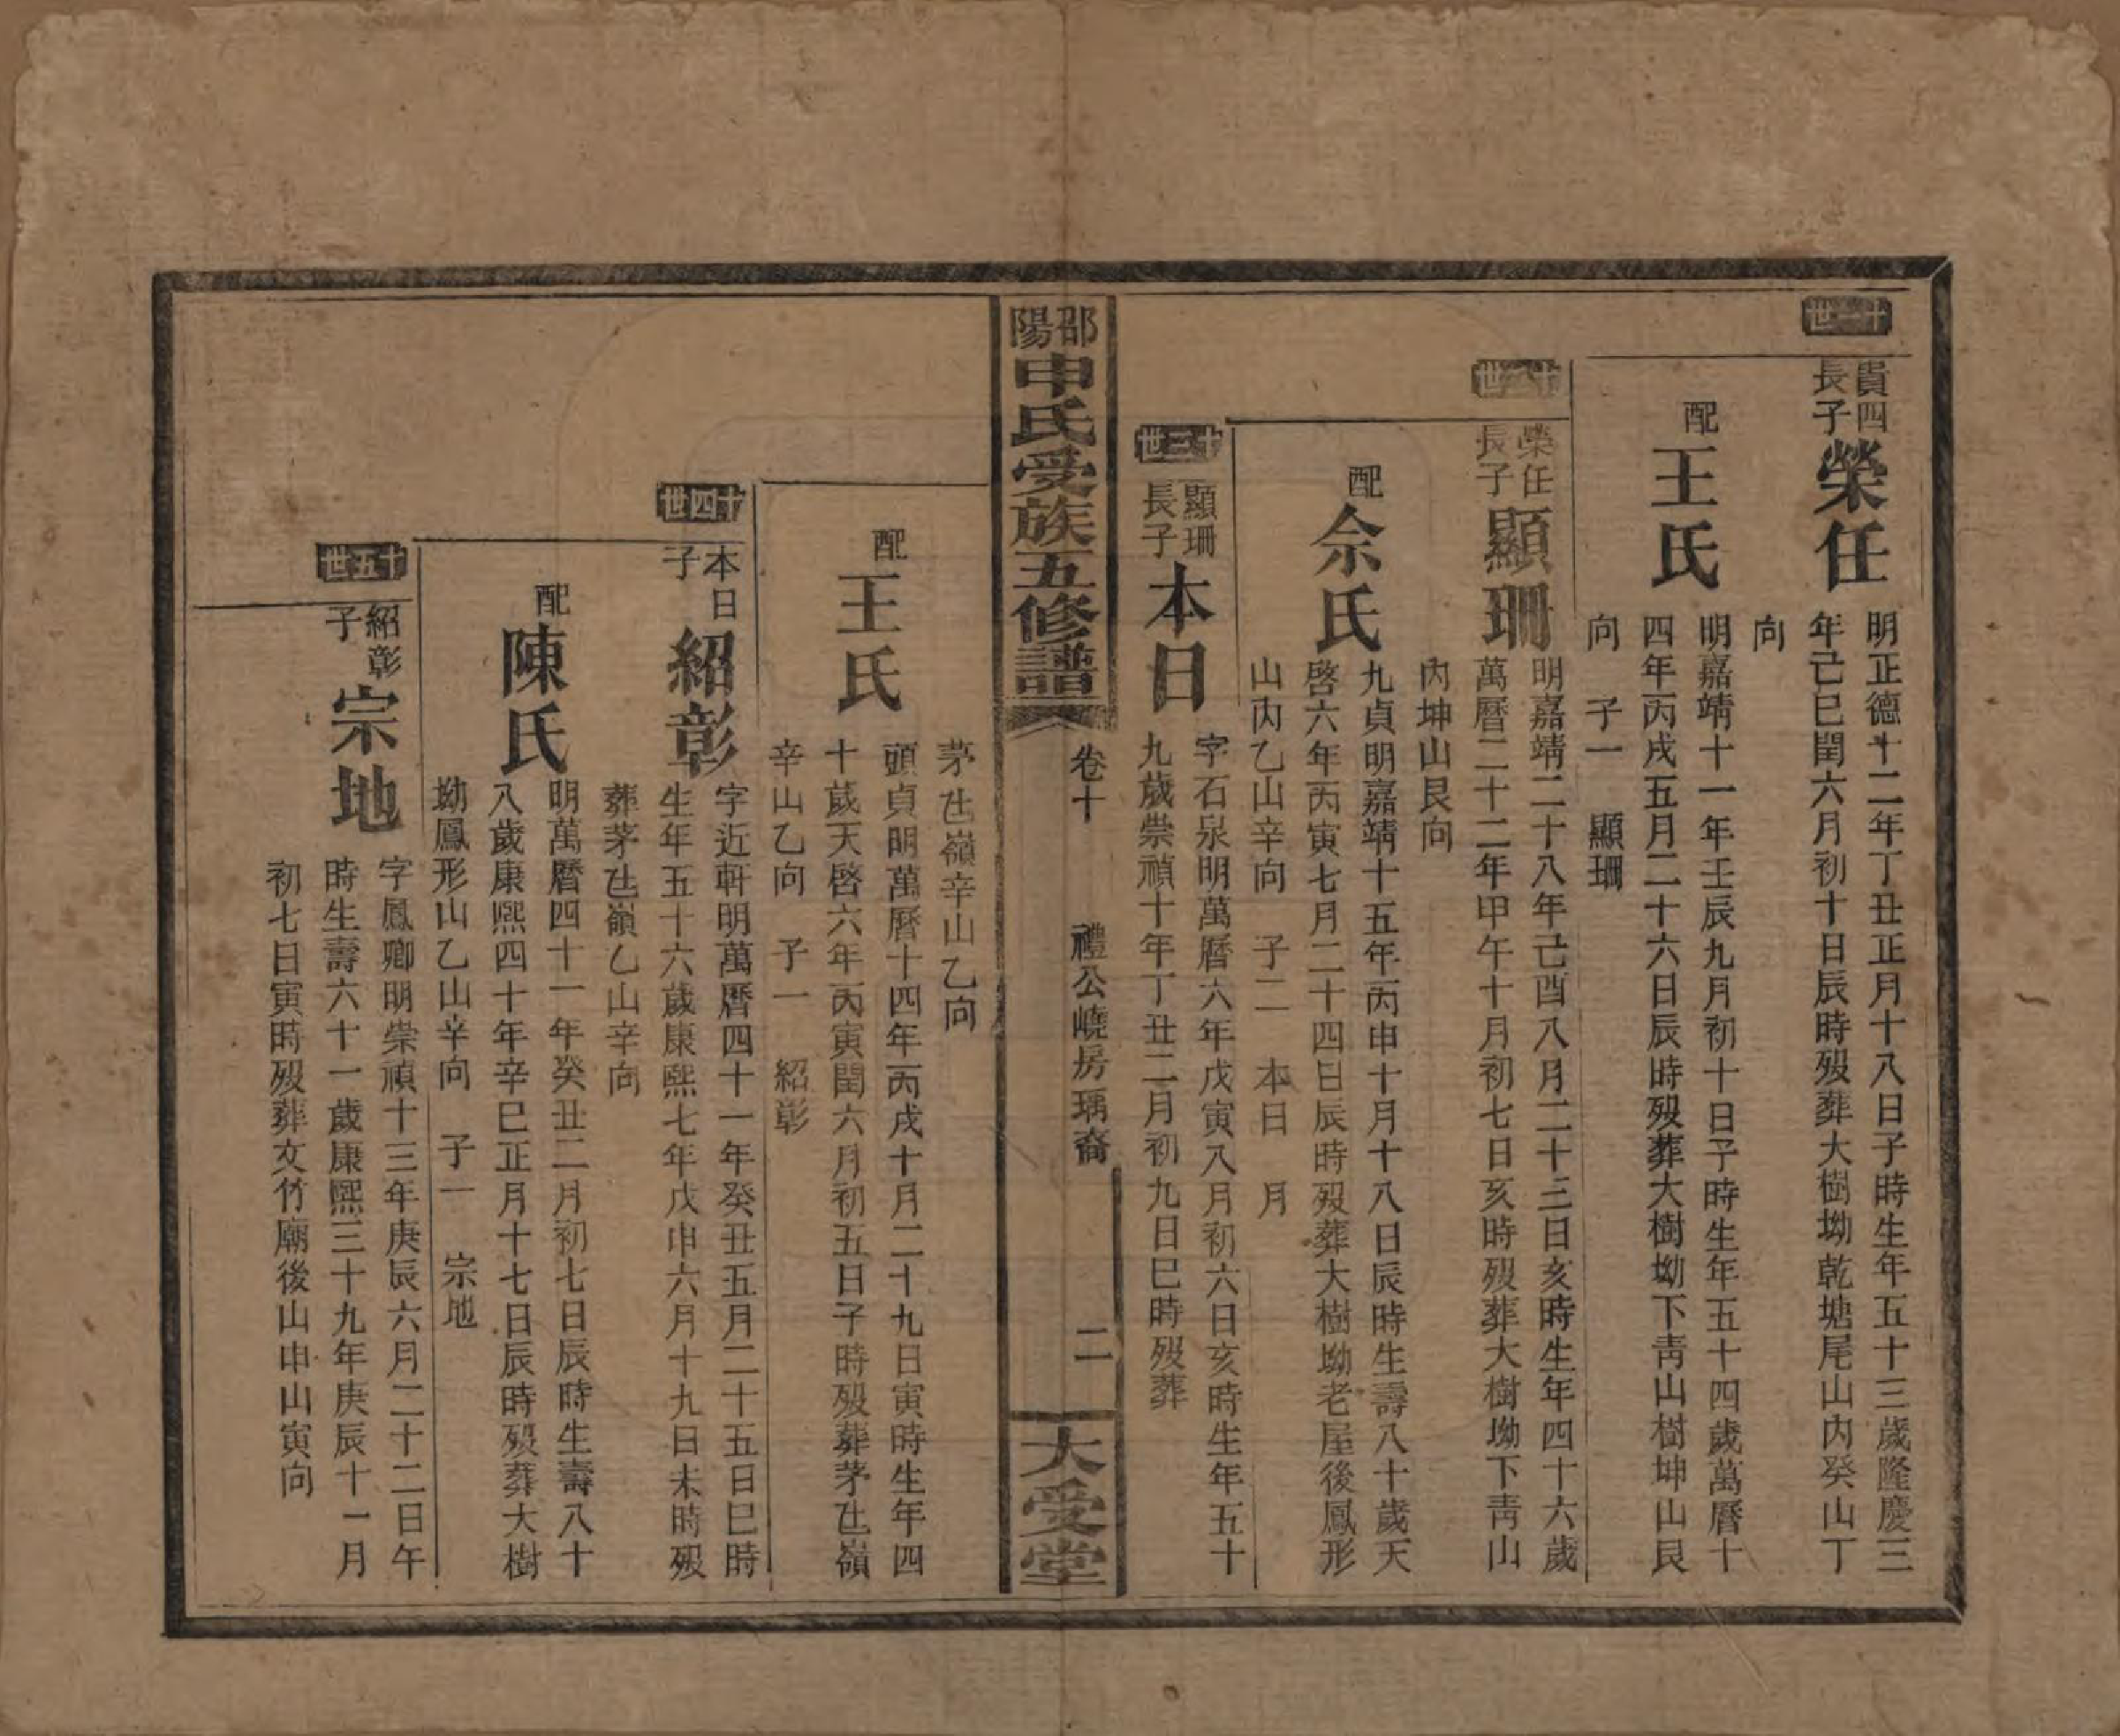 十一世
貴四
長子
榮任
明正德十二年丁丑正月十八日子時生年五十三歲隆慶三
年己巳閏六月初十日辰時歿葬大樹坳乾塘尾山内癸山丁
向
配
王氏
明嘉靖十一年壬辰九月初十日子時生年五十四歲萬曆十
四年丙戌五月二十六日辰時歿葬大樹坳下靑山樹坤山艮
向 子一 顯珊
十二世
榮任
長子
顯珊
明嘉靖二十八年己酉八月二十三日亥時生年四十六歲
萬曆二十二年甲午十月初七日亥時歿葬大樹坳下靑山
内坤山艮向
配
佘氏
九貞明嘉靖十五年丙申十月十八日辰時生壽八十歲天
啓六年丙寅七月二十四日辰時歿葬大樹坳老屋後鳳形
山内乙山辛向 子二 本日 月
十三世
顯珊
長子
本日
字石泉明萬曆六年戊寅八月初六日亥時生年五十
九歲崇禎十年丁丑二月初九日巳時歿葬
邵陽
申氏受族五修譜
卷十
禮公嶢房瑀裔
二
大受堂
茅岜嶺辛山乙向
配
王氏
頭貞明萬曆十四年丙戌十月二十九日寅時生年四
十歲天啓六年丙寅閏六月初五日子時歿葬茅岜嶺
辛山乙向 子一 紹彰
十四世
本日
子
紹彰
字近軒明萬曆四十一年癸丑五月二十五日巳時
生年五十六歲康熙七年戊申六月十九日未時歿
葬茅岜嶺乙山辛向
配
陳氏
明萬曆四十一年癸丑二月初七日辰時生壽八十
八歲康熙四十年辛巳正月十七日辰時歿葬大樹
坳鳳形山乙山辛向 子一 宗地
十五世
紹彰
子
宗地
字鳳卿明崇禎十三年庚辰六月二十二日午
時生壽六十一歲康熙三十九年庚辰十一月
初七日寅時歿葬文竹廟後山申山寅向